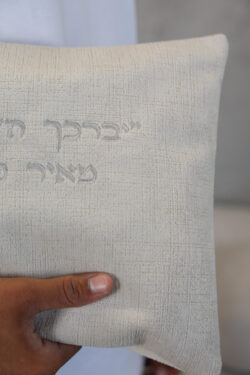 "יברכך ה'
מאיר